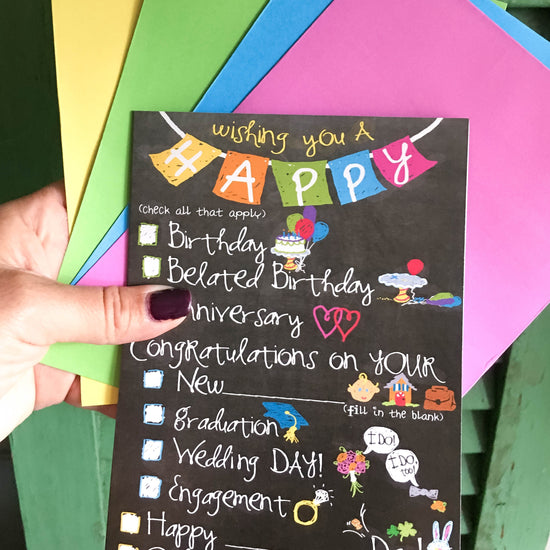 wishing you A
HAPPY
(check all that apply)
Birthday
Belated Birthday
nniversary
Congratulations on YOUR
New
(fill in the blank)
graduation
I DO!
Wedding DAY!
I DO, too!
Engagement
Happy Day!